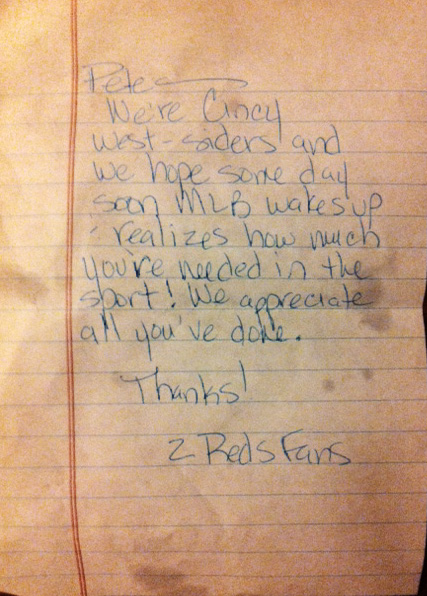 Pete
We're Cincy
west-siders and
we hope some day
soon MLB wakes up
: realizes how much
you're needed in the
sport! We appreciate
all you've done.
Thanks!
2 Reds Fans